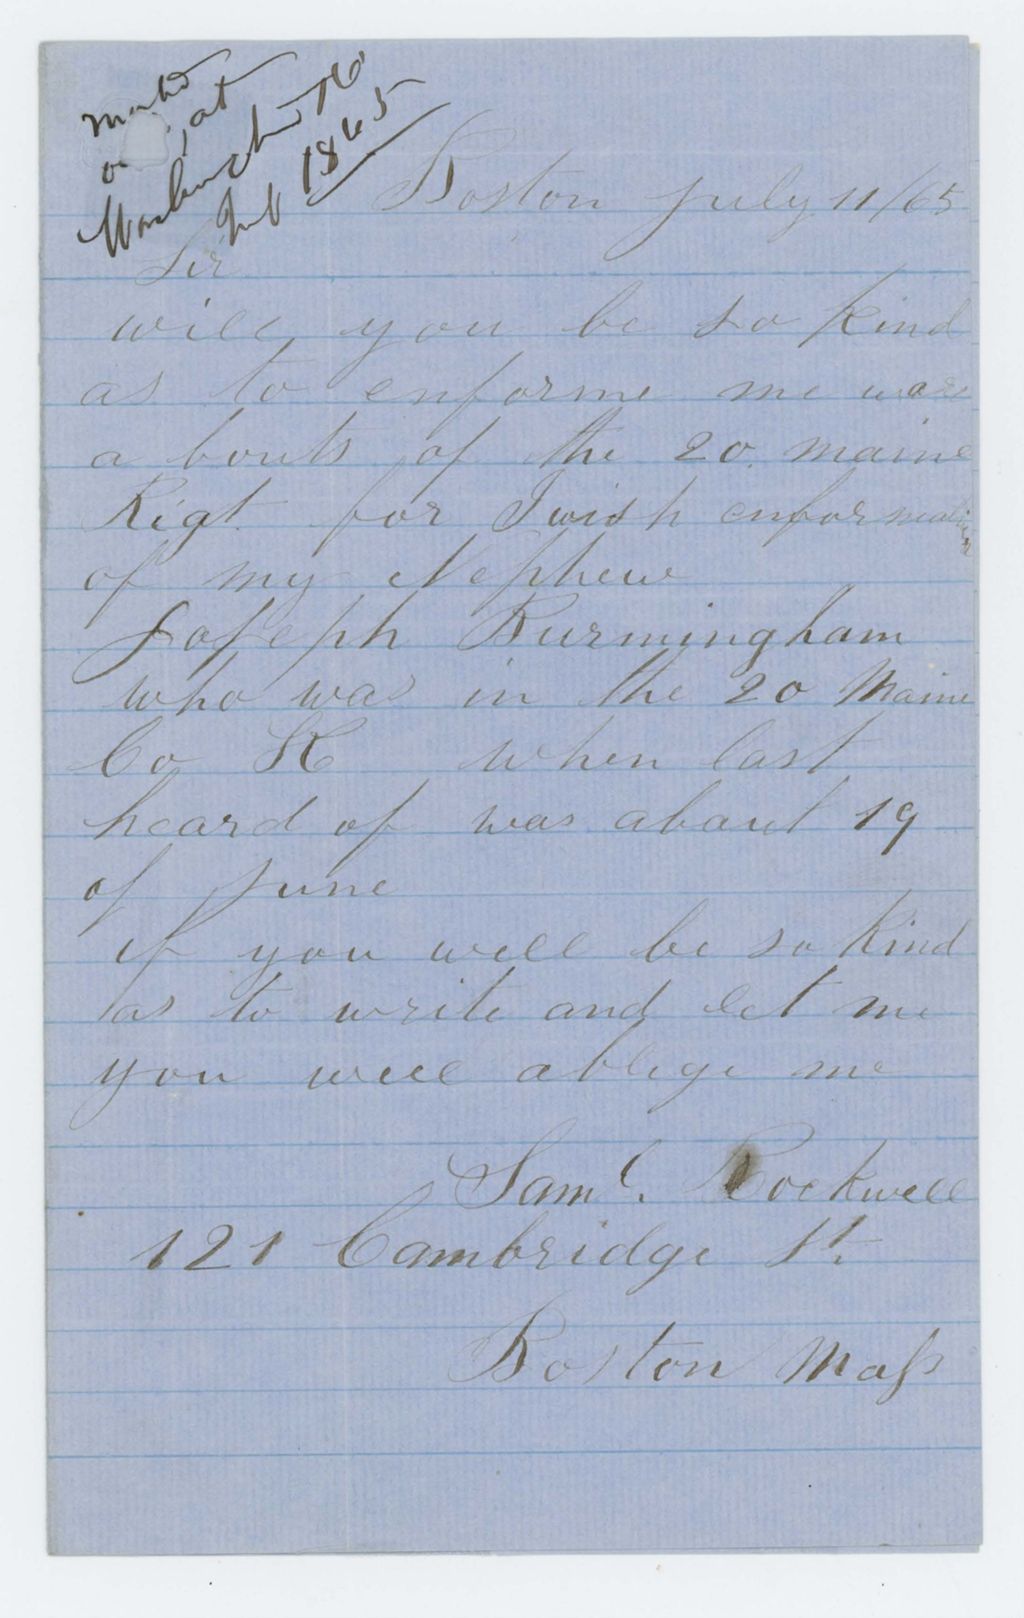 out, at
Washington
July 16 1865
Boston July 11/65
Sir
will you be so Kind
as to enforme me ware
a bouts of the 20. Maine
Rigt. for I wish enformation
of my Nephew
Joseph Burmingham
who was in the 20 Maine
Co K when last
heard of was about 19
of June
if you will be so Kind
as to write and let me
you will ablige me
Saml. Rockwell
121 Cambridge St.
Boston Mass